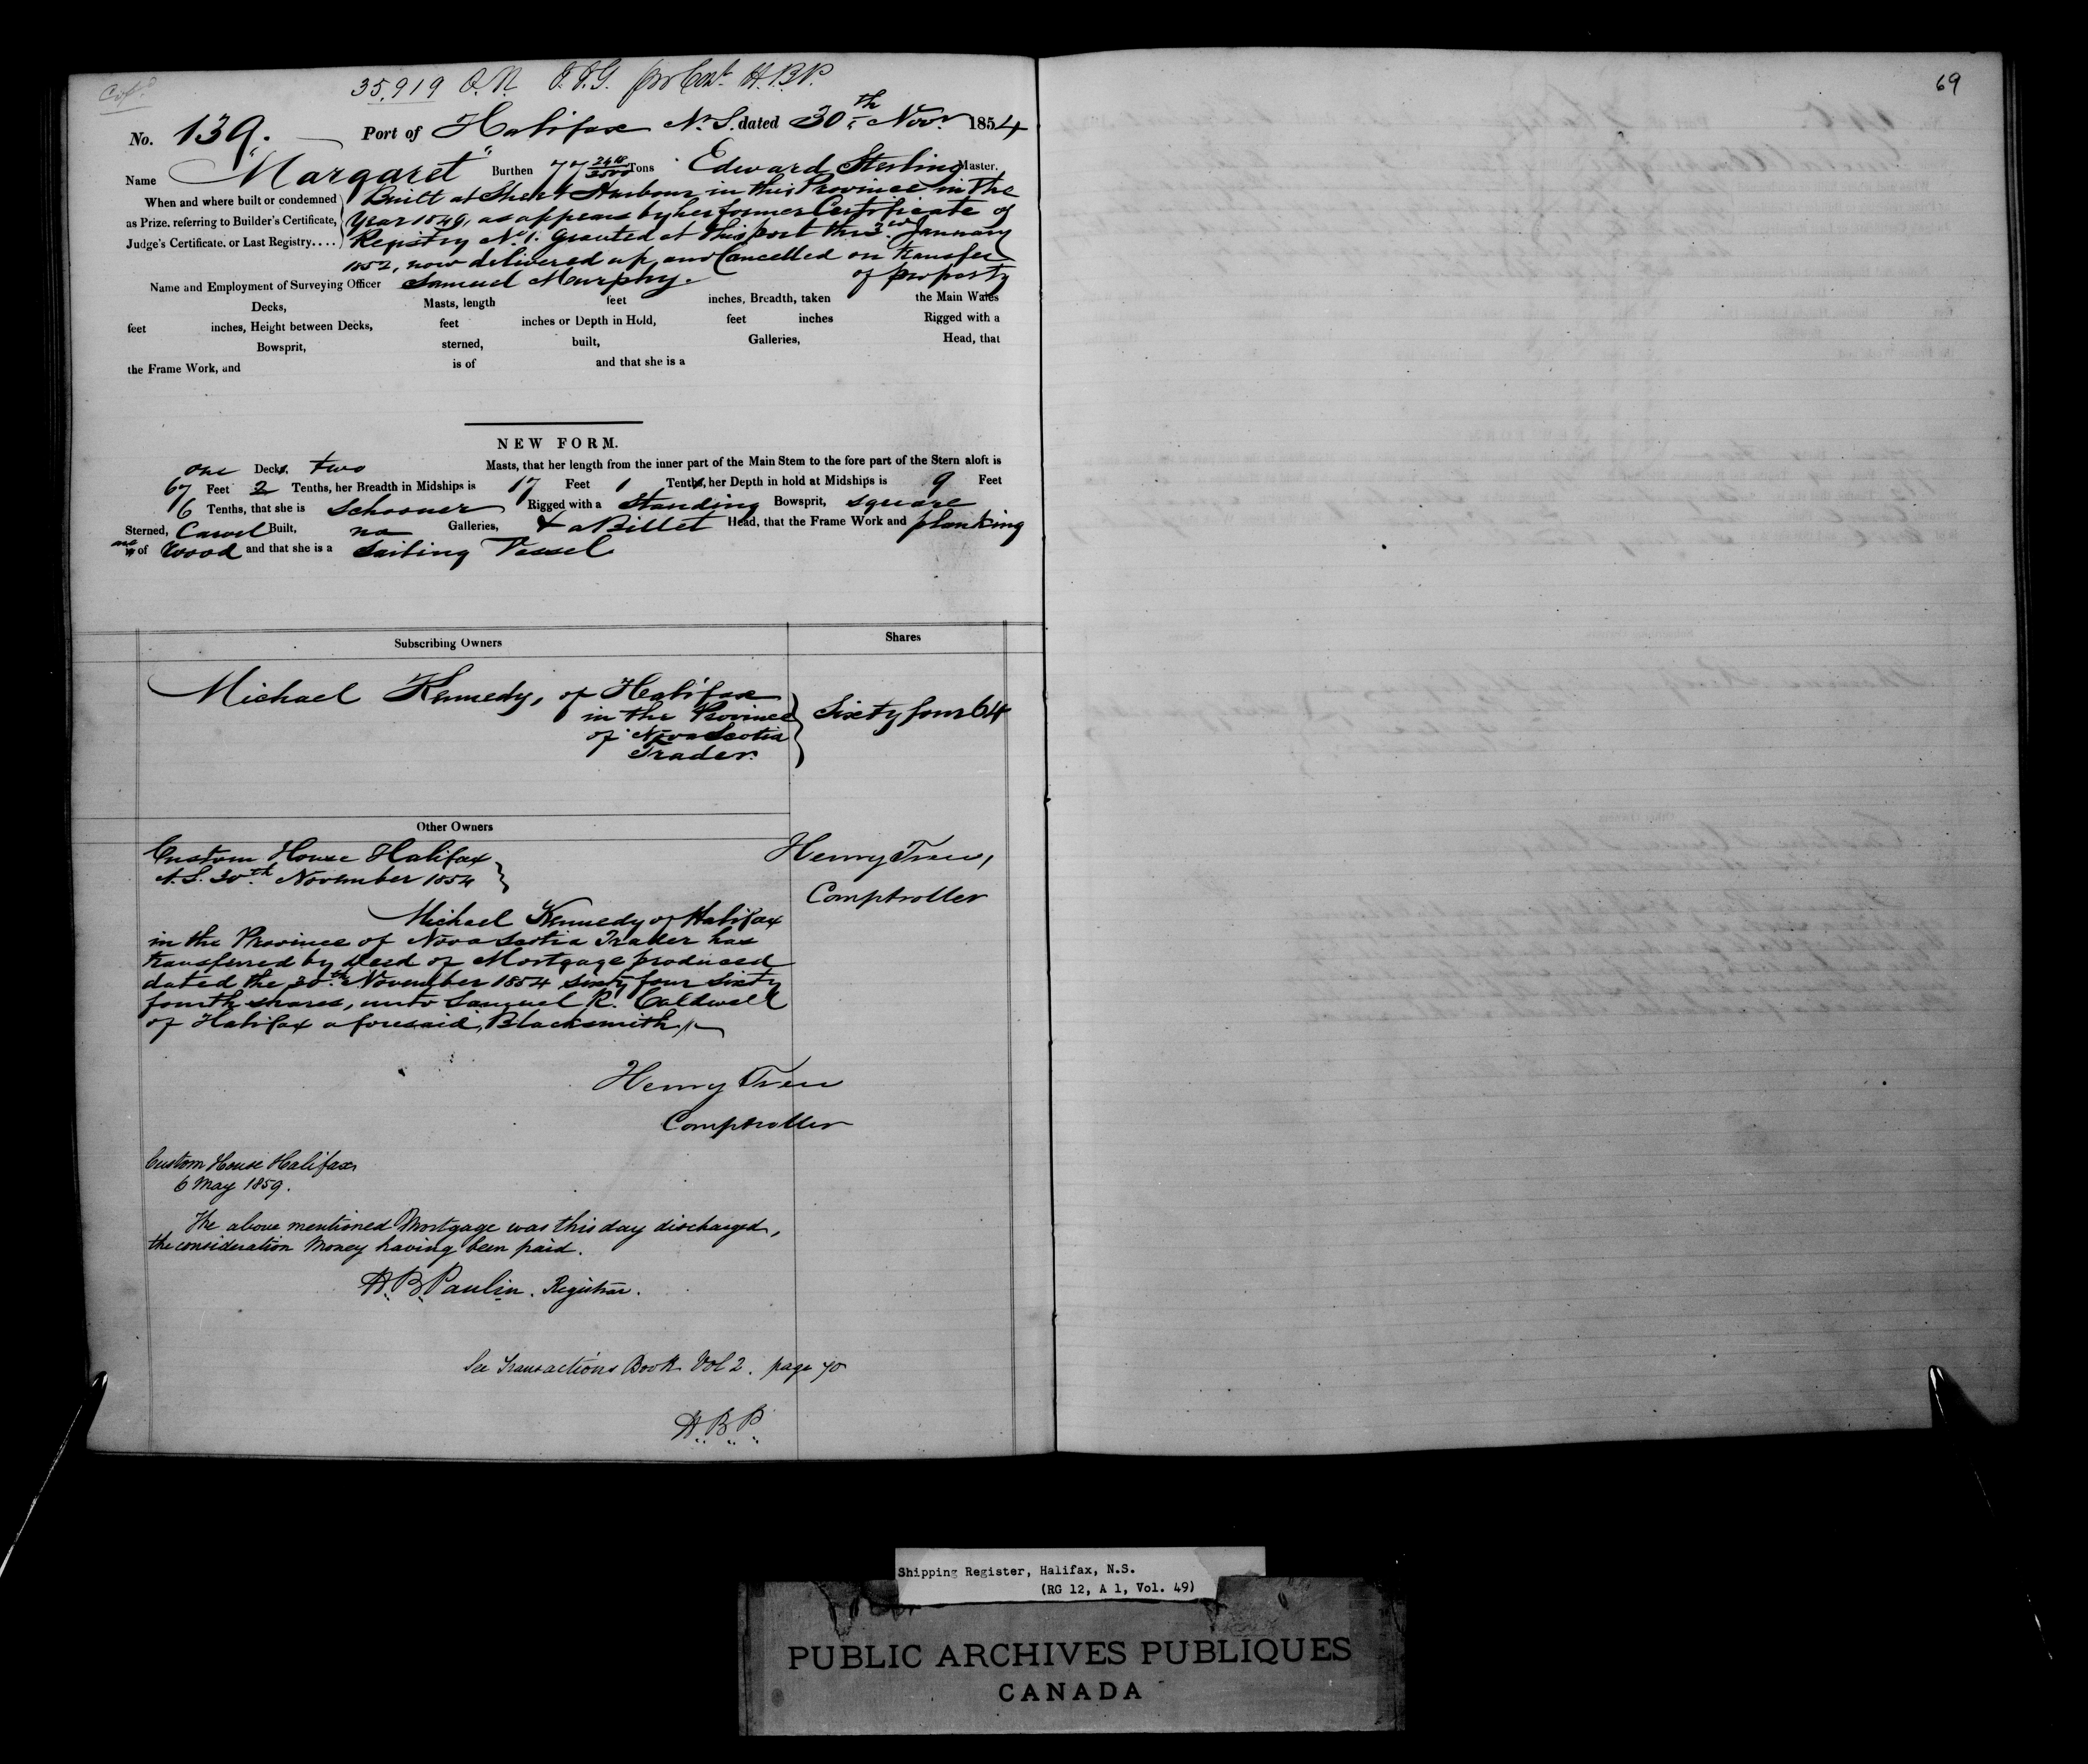 35,919 O.N. H.B.P.
69
No. 139. Port of Halifax N.S. dated 30th Novr 1854
Name "Margaret" Burthen 77 2418/3500 Tons Edward Sterling Master.
When and where built or condemned as Prize, referring to Builder's Certificate, Judge's Certificate, or Last Registry....
Built at Harbour in this Province in the
Year 1849, as appears by her former Certificate of
Registry No. 1. granted at this port this 3rd January
1852, now delivered up and Cancelled on transfer
of property
Name and Employment of Surveying Officer Samuel Murphy.
Decks, Masts, length feet inches, Breadth, taken the Main Wales
feet inches, Height between Decks, feet inches or Depth in Hold, feet inches Rigged with a
Bowsprit, sterned, built, Galleries, Head, that
the Frame Work, and is of and that she is a
NEW FORM.
one Decks, two Masts, that her length from the inner part of the Main Stem to the fore part of the Stern aloft is
67 Feet 2 Tenths, her Breadth in Midships is 17 Feet 1 Tenths, her Depth in hold at Midships is 9 Feet
6 Tenths, that she is Schooner Rigged with a Standing Bowsprit, square
Sterned, Carvel Built, no Galleries, & a Billet Head, that the Frame Work and planking
are of Wood and that she is a Sailing Vessel
Subscribing Owners Shares
Michael Kennedy, of Halifax
in the Province
of Nova Scotia
Trader.
Sixty four 64
Other Owners
Custom House Halifax
N.S. 30th November 1854
Henry Trew,
Comptroller
Michael Kennedy of Halifax
in the Province of Nova Scotia Trader has
transferred by Deed of Mortgage produced
dated the 30th November 1854 sixty four sixty
fourth shares, unto Samuel R. Caldwell
of Halifax aforesaid, Blacksmith
Henry Trew
Comptroller
Custom House Halifax
6 May 1859.
The above mentioned Mortgage was this day discharged,
the consideration Money having been paid.
H.B. Paulin. Registrar.
See Transactions Book Vol 2. page 70
H.B.P.
Shipping Register, Halifax, N.S.
(RG 12, A 1, Vol. 49)
PUBLIC ARCHIVES PUBLIQUES
CANADA